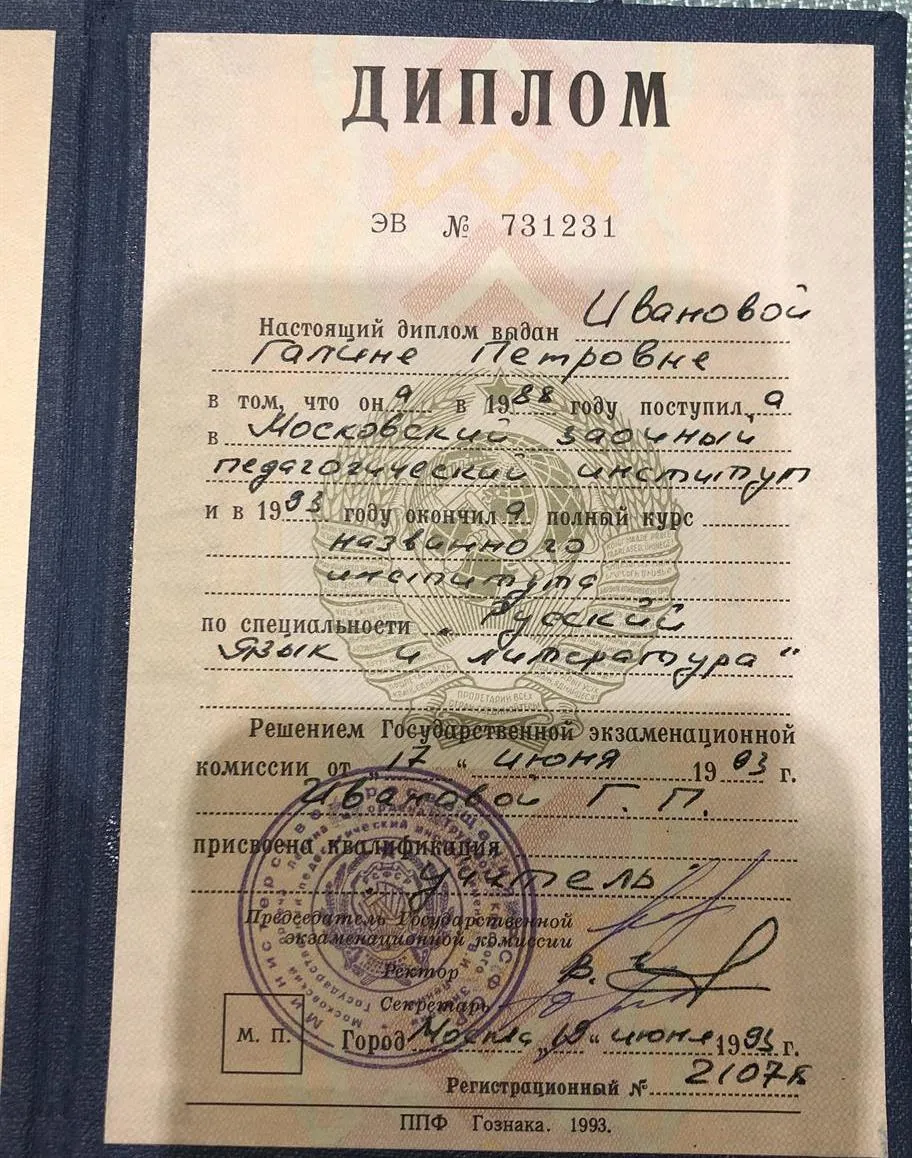 ДИПЛОМ
ЭВ № 731231
Настоящий диплом выдан Ивановой
Галине Петровне
в том, что он а в 1988 году поступил а
в Московский заочный
педагогический институт
и в 1993 году окончил а полный курс
названного
института
по специальности „Русский
язык и литература"
Решением Государственной экзаменационной
комиссии от „17" июня 1993 г.
Ивановой Г. П.
присвоена квалификация
учитель
Председатель Государственной
экзаменационной комиссии
Ректор
Секретарь
М. П.
Город Москва „19" июня 1993 г.
Регистрационный №
ППФ Гознака. 1993.